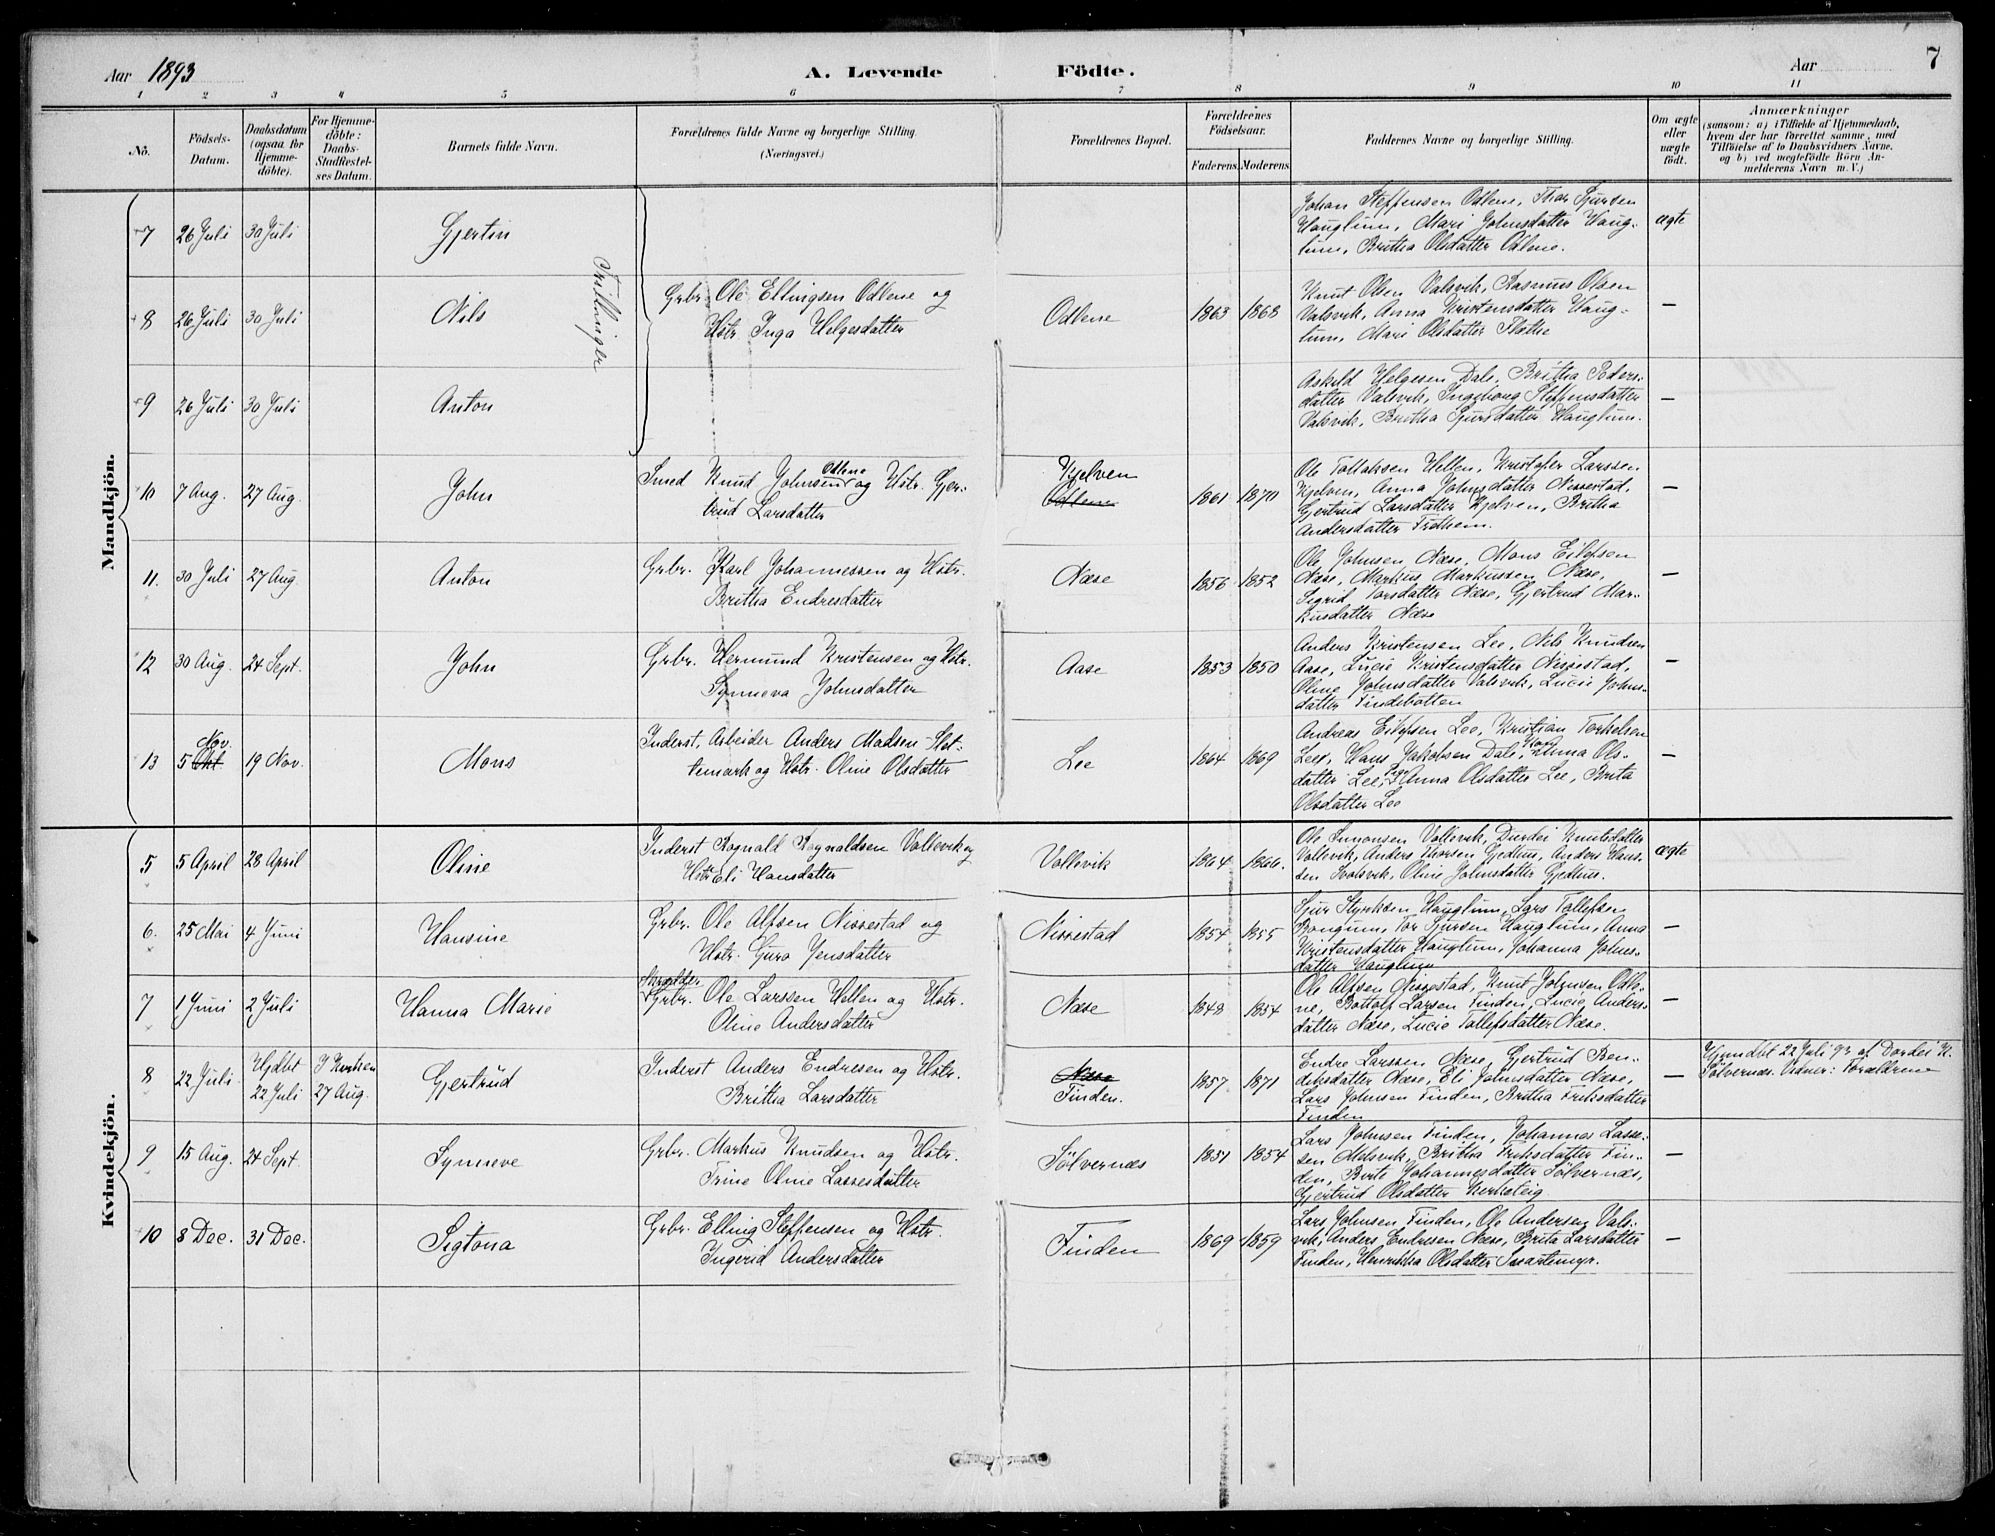 Aar 1893
A. Levende Födte.
Aar
7
1 2 3 4 5 6 7 8 9 10 11
No.
Födsels-
Datum.
Daabsdatum
(ogsaa for
Hjemme-
döbte).
For Hjemme-
döbte:
Daabs-
Stadfæstel-
ses Datum.
Barnets fulde Navn.
Forældrenes fulde Navne og borgerlige Stilling.
(Næringsvei.)
Forældrenes Bopæl.
Forældrenes
Födselsaar.
Faderens. Moderens.
Faddernes Navne og borgerlige Stilling.
Om ægte
eller
uægte
født.
Anmærkninger
(saasom: a) i Tilfælde af Hjemmedaab,
hvem der har forrettet samme, med
Tilföielse af to Daabsvidners Navne,
og b) ved uegtefödte Börn An-
melderens Navn m.V.)
Mandkjön.
7 26 Juli 30 Juli Gjertin
Johan Steffensen Odlene, Thor Sjursen
Hauglum, Mari Johnsdatter Haug-
lum, Britha Olsdatter Odlene.
ægte
Trillinger
8 26 Juli 30 Juli Nils
Grbr. Ole Ellingsen Odlene og
Hstr. Inga Helgesdatter
Odlene 1863 1868
Knut Olsen Valsvik, Rasmus Olsen
Valsvik, Anna Kristensdatter Haug-
lum, Mari Olsdatter Flathe
—
9 26 Juli 30 Juli Anton
Askeld Helgesen Dale, Britha Peders-
datter Valsvik, Ingeborg Steffensdatter
Valsvik, Britha Sjursdatter Hauglum.
—
10 7 Aug. 27 Aug. John
Smed Knud Johnsen Odlene og Hstr. Gjer-
trud Larsdatter
Kjelven
Odlene
1861 1870
Ole Tollaksen Hellen, Kristofer Larssen
Kjelven, Anna Johnsdatter Nissestad,
Gjertrud Larsdatter Kjelven, Britha
Andersdatter Frøthem.
—
11. 30 Juli 27 Aug. Anton
Grbr. Karl Johannessen og Hstr.
Britha Endresdatter
Næse 1856 1852
Ole Johnsen Næse, Mons Eilefsen
Næse, Markus Markussen Næse,
Sigrid Torsdatter Næse, Gjertrud Mar-
kusdatter Næse
—
12 30 Aug. 24 Sept. John
Grbr. Hermund Kristensen og Hstr.
Synneva Johnsdatter
Aase 1853 1850
Anders Kristensen Lee, Nils Knudsen
Aase, Lucie Kristensdatter Nissestad,
Oline Johnsdatter Valsvik, Lucie Johns-
datter Findebotten
—
13 5 Okt. Nov. 19 Nov. Mons
Inderst, Arbeider Anders Madsen Slet-
temark og Hstr. Oline Olsdatter
Lee 1864 1869
Andreas Eilefsen Lee, Kristian Torkelsen
Lee, Hans Jakobsen Dale, Anna Ols-
datter Lee, Anna Olsdatter Lee, Brita
Olsdatter Lee
—
Kvindekjön.
5 5 April 28 April Oline
Inderst Rognald Rognaldsen Vollevik og
Hstr Eli Hansdatter
Vollevik 1864 1866.
Ole Simonsen Vollevik, Durdei Knutsdatter
Vollevik, Anders Thorsen Gjedhus, Anders Han-
sen Valsvik, Oline Johnsdatter Gjedhus.
ægte
6. 25 Mai 4 Juni Hansine
Grbr. Ole Alfsen Nissestad og
Hstr. Guro Jensdatter
Nissestad 1854 1855
Sjur Styrksen Hauglum, Lars Tollefsen
Bongum, Tor Sjursen Hauglum, Anna
Kristensdatter Hauglum, Johanna Johns-
datter Hauglum
—
7 1 Juni 2 Juli Hanna Marie
Grbr. Ole Larssen Hellen og Hstr.
Oline Andersdatter
Næse 1848 1854
Ole Alfsen Nissestad, Knut Johnsen Odle-
ne, Bottolf Larsen Finden, Lucie Anders-
datter Næse, Lucie Tollefsdatter Næse.
—
8 22 Juli. Hjdbt 22 Juli I Kirken 27 Aug. Gjertrud
Inderst Anders Endresen og Hstr.
Britha Larsdatter
Næse
Finden.
1857 1871
Endre Larssen Næse, Gjertrud Ben-
diksdatter Næse, Eli Johnsdatter Næse,
Lars Johnsen Finden, Britha Eriksdatter
Finden
—
Hjmdbt 22 Juli 93 af Dordei K.
Sølvernæs. Vidner: Forældrene
9 15 Aug. 24 Sept. Synneve
Grbr. Markus Knudsen og Hstr.
Trine Oline Lassesdatter
Sølvernæs 1851 1854
Lars Johnsen Finden, Johannes Lasse-
sen Melsvik, Britha Eriksdatter Fin-
den, Berte Johannesdatter Sølvernæs,
Gjertrud Olsdatter Kirketeig
—
10 8 Dec. 31 Dec. Sigtona
Grbr. Elling Steffensen og Hstr.
Ingerid Andersdatter
Finden 1869 1859
Lars Johnsen Finden, Ole Andersen Vals-
vik, Anders Endresen Næse, Brita Larsdatter
Finden, Henrikka Olsdatter Svartemyr.
—